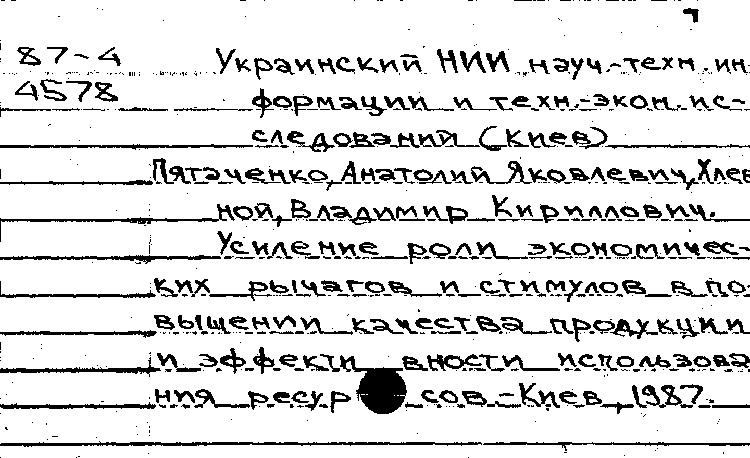 87-4 Украинский НИИ науч.-техн. ин
4578 формации и техн.-экон. ис-
следований (Киев)
Пятаченко, Анатолий Яковлевич, Хлев
ной, Владимир Кириллович.
Усиление роли экономичес-
ких рычагов и стимулов в по-
вышении качества продукции
и эффекти вности использова
ния ресур сов.-Киев, 1987.